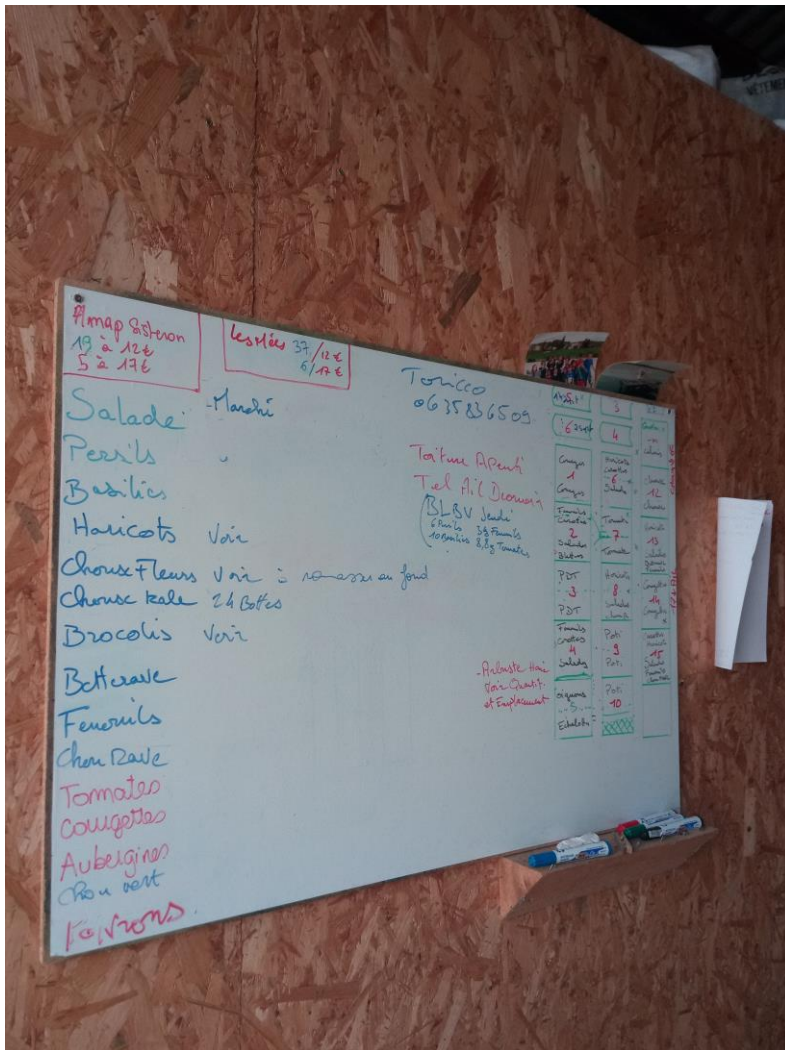 Amap Sisteron
19 à 12€
5 à 17€
Les Mées 37/12€
6/17€
Toricco
0635836509
Salade - Marché
Persils "
Basilics
Haricots Voir
Choux Fleurs Voir à ramasser au fond
Choux kale 24 Bottes
Brocolis Voir
Betterave
Fenouils
Chou Rave
Tomates
Courgettes
Aubergines
Chou vert
Poivrons
Toiture Apenti
Tel Ail Demain
BLBV Jeudi
6 Persils 5kg Fenouils
10 Basilics 8,8kg Tomates
- Arbuste Haie
Voir Quantit.
et Emplacement
3
4
Courges
1
Courges
Fenouils
Carottes
2
Salades
Blettes
PDT
3
PDT
Fenouils
Carottes
4
Salades
oignons
5
Echalotes
Haricots
6
Salades
Tomate
7
Tomate
Haricots
8
Salades
Poti
9
Poti
Poti
10
12
13
Salades
Courgettes
14
Courgettes
Carottes
Haricots
15
Salades
VÊTEME